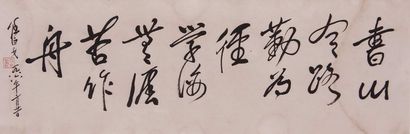 書山
有路
勤为
徑
学海
無涯
苦作
舟